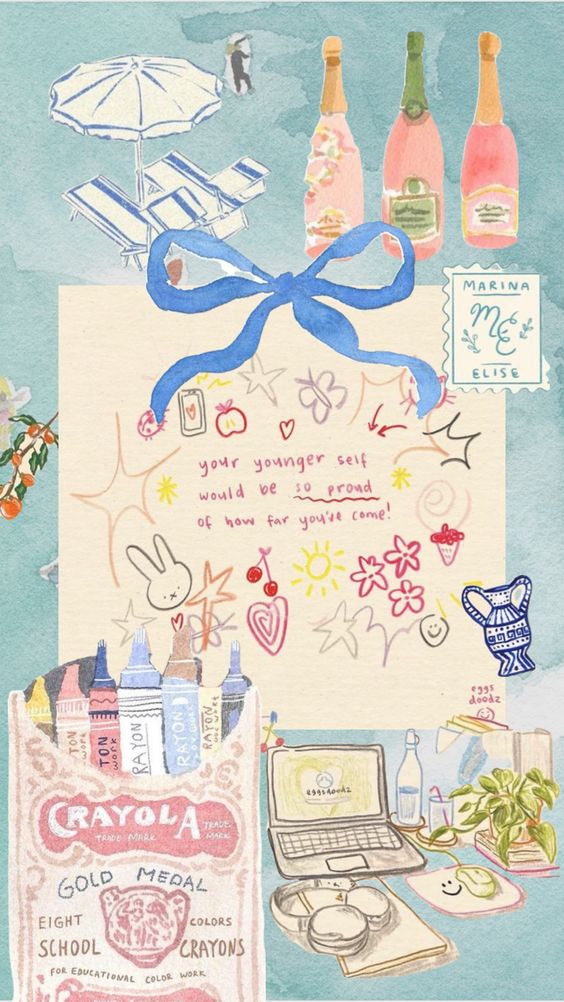 MARINA
ME
ELISE
your younger self
would be so proud
of how far you've come!
eggs
doodz
TON
work
TON
work
RAYON
RAYON
work
RAYON
work
eggsdoodz
CRAYOLA
TRADE MARK
TRADE
MARK
GOLD MEDAL
EIGHT COLORS
SCHOOL CRAYONS
FOR EDUCATIONAL COLOR WORK